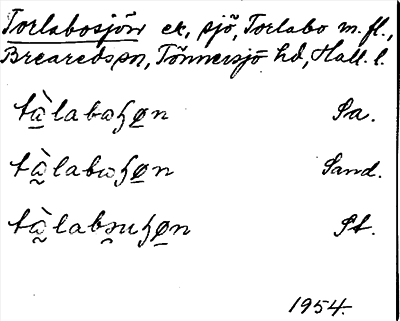 Torlabosjön ek, sjö, Torlabo m. fl.,
Breareds sn, Tönnersjö hd, Hall. l.
tàlabaɧøn Sa.
tàlabɷɧøn Sand.
tàlabɷuɧøn St.
1954.